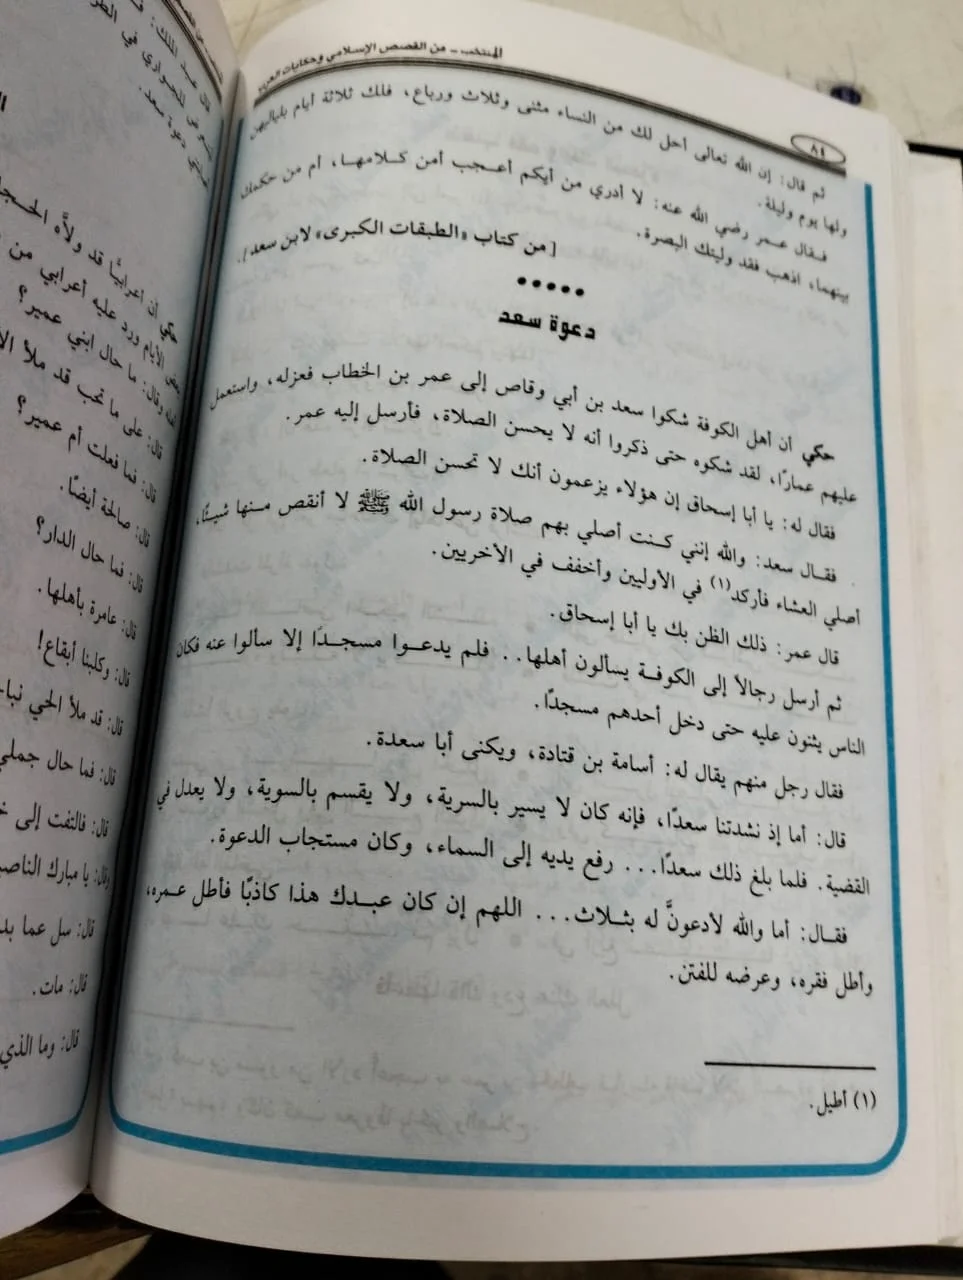 المنتخب - من القصص الإسلامي وحكايات العرب
٨٤
ثم قال: إن الله تعالى أحل لك من النساء مثنى وثلاث ورباع، فلك ثلاثة أيام بلياليهن
ولها يوم وليلة.
فقال عمر رضي الله عنه: لا أدري من أيكم أعجب أمن كلامها، أم من حكمك
بينهما، اذهب فقد وليتك البصرة.
[من كتاب «الطبقات الكبرى» لابن سعد].
•••••
دعوة سعد
حكي أن أهل الكوفة شكوا سعد بن أبي وقاص إلى عمر بن الخطاب فعزله، واستعمل
عليهم عمارًا، لقد شكوه حتى ذكروا أنه لا يحسن الصلاة، فأرسل إليه عمر.
فقال له: يا أبا إسحاق إن هؤلاء يزعمون أنك لا تحسن الصلاة.
فقال سعد: والله إنني كنت أصلي بهم صلاة رسول الله ﷺ لا أنقص منها شيئًا،
أصلي العشاء فأركد(١) في الأوليين وأخفف في الأخريين.
قال عمر: ذلك الظن بك يا أبا إسحاق.
ثم أرسل رجالاً إلى الكوفة يسألون أهلها.. فلم يدعوا مسجدًا إلا سألوا عنه فكان
الناس يثنون عليه حتى دخل أحدهم مسجدًا.
فقال رجل منهم يقال له: أسامة بن قتادة، ويكنى أبا سعدة.
قال: أما إذ نشدتنا سعدًا، فإنه كان لا يسير بالسرية، ولا يقسم بالسوية، ولا يعدل في
القضية. فلما بلغ ذلك سعدًا... رفع يديه إلى السماء، وكان مستجاب الدعوة.
فقال: أما والله لأدعونَّ له بثلاث... اللهم إن كان عبدك هذا كاذبًا فأطل عمره،
وأطل فقره، وعرضه للفتن.
(١) أطيل.
قال عبد الملك:
للجواري في
دعوة سعد.
حكي أن أعرابيًّا قد ولاَّه
الأيام ورد عليه أعرابي من
وقال: ما حال ابني عمير؟
قال: على ما تحب قد ملأ
قال: فما فعلت أم عمير؟
قال: صالحة أيضًا.
قال: فما حال الدار؟
قال: عامرة بأهلها.
قال: وكلبنا أبقاع!
قال: قد ملأ الحي
قال: فما حال جملي
قال: فالتفت إلى
وقال: يا مبارك
قال: سل عما
قال: مات.
قال: وما الذي